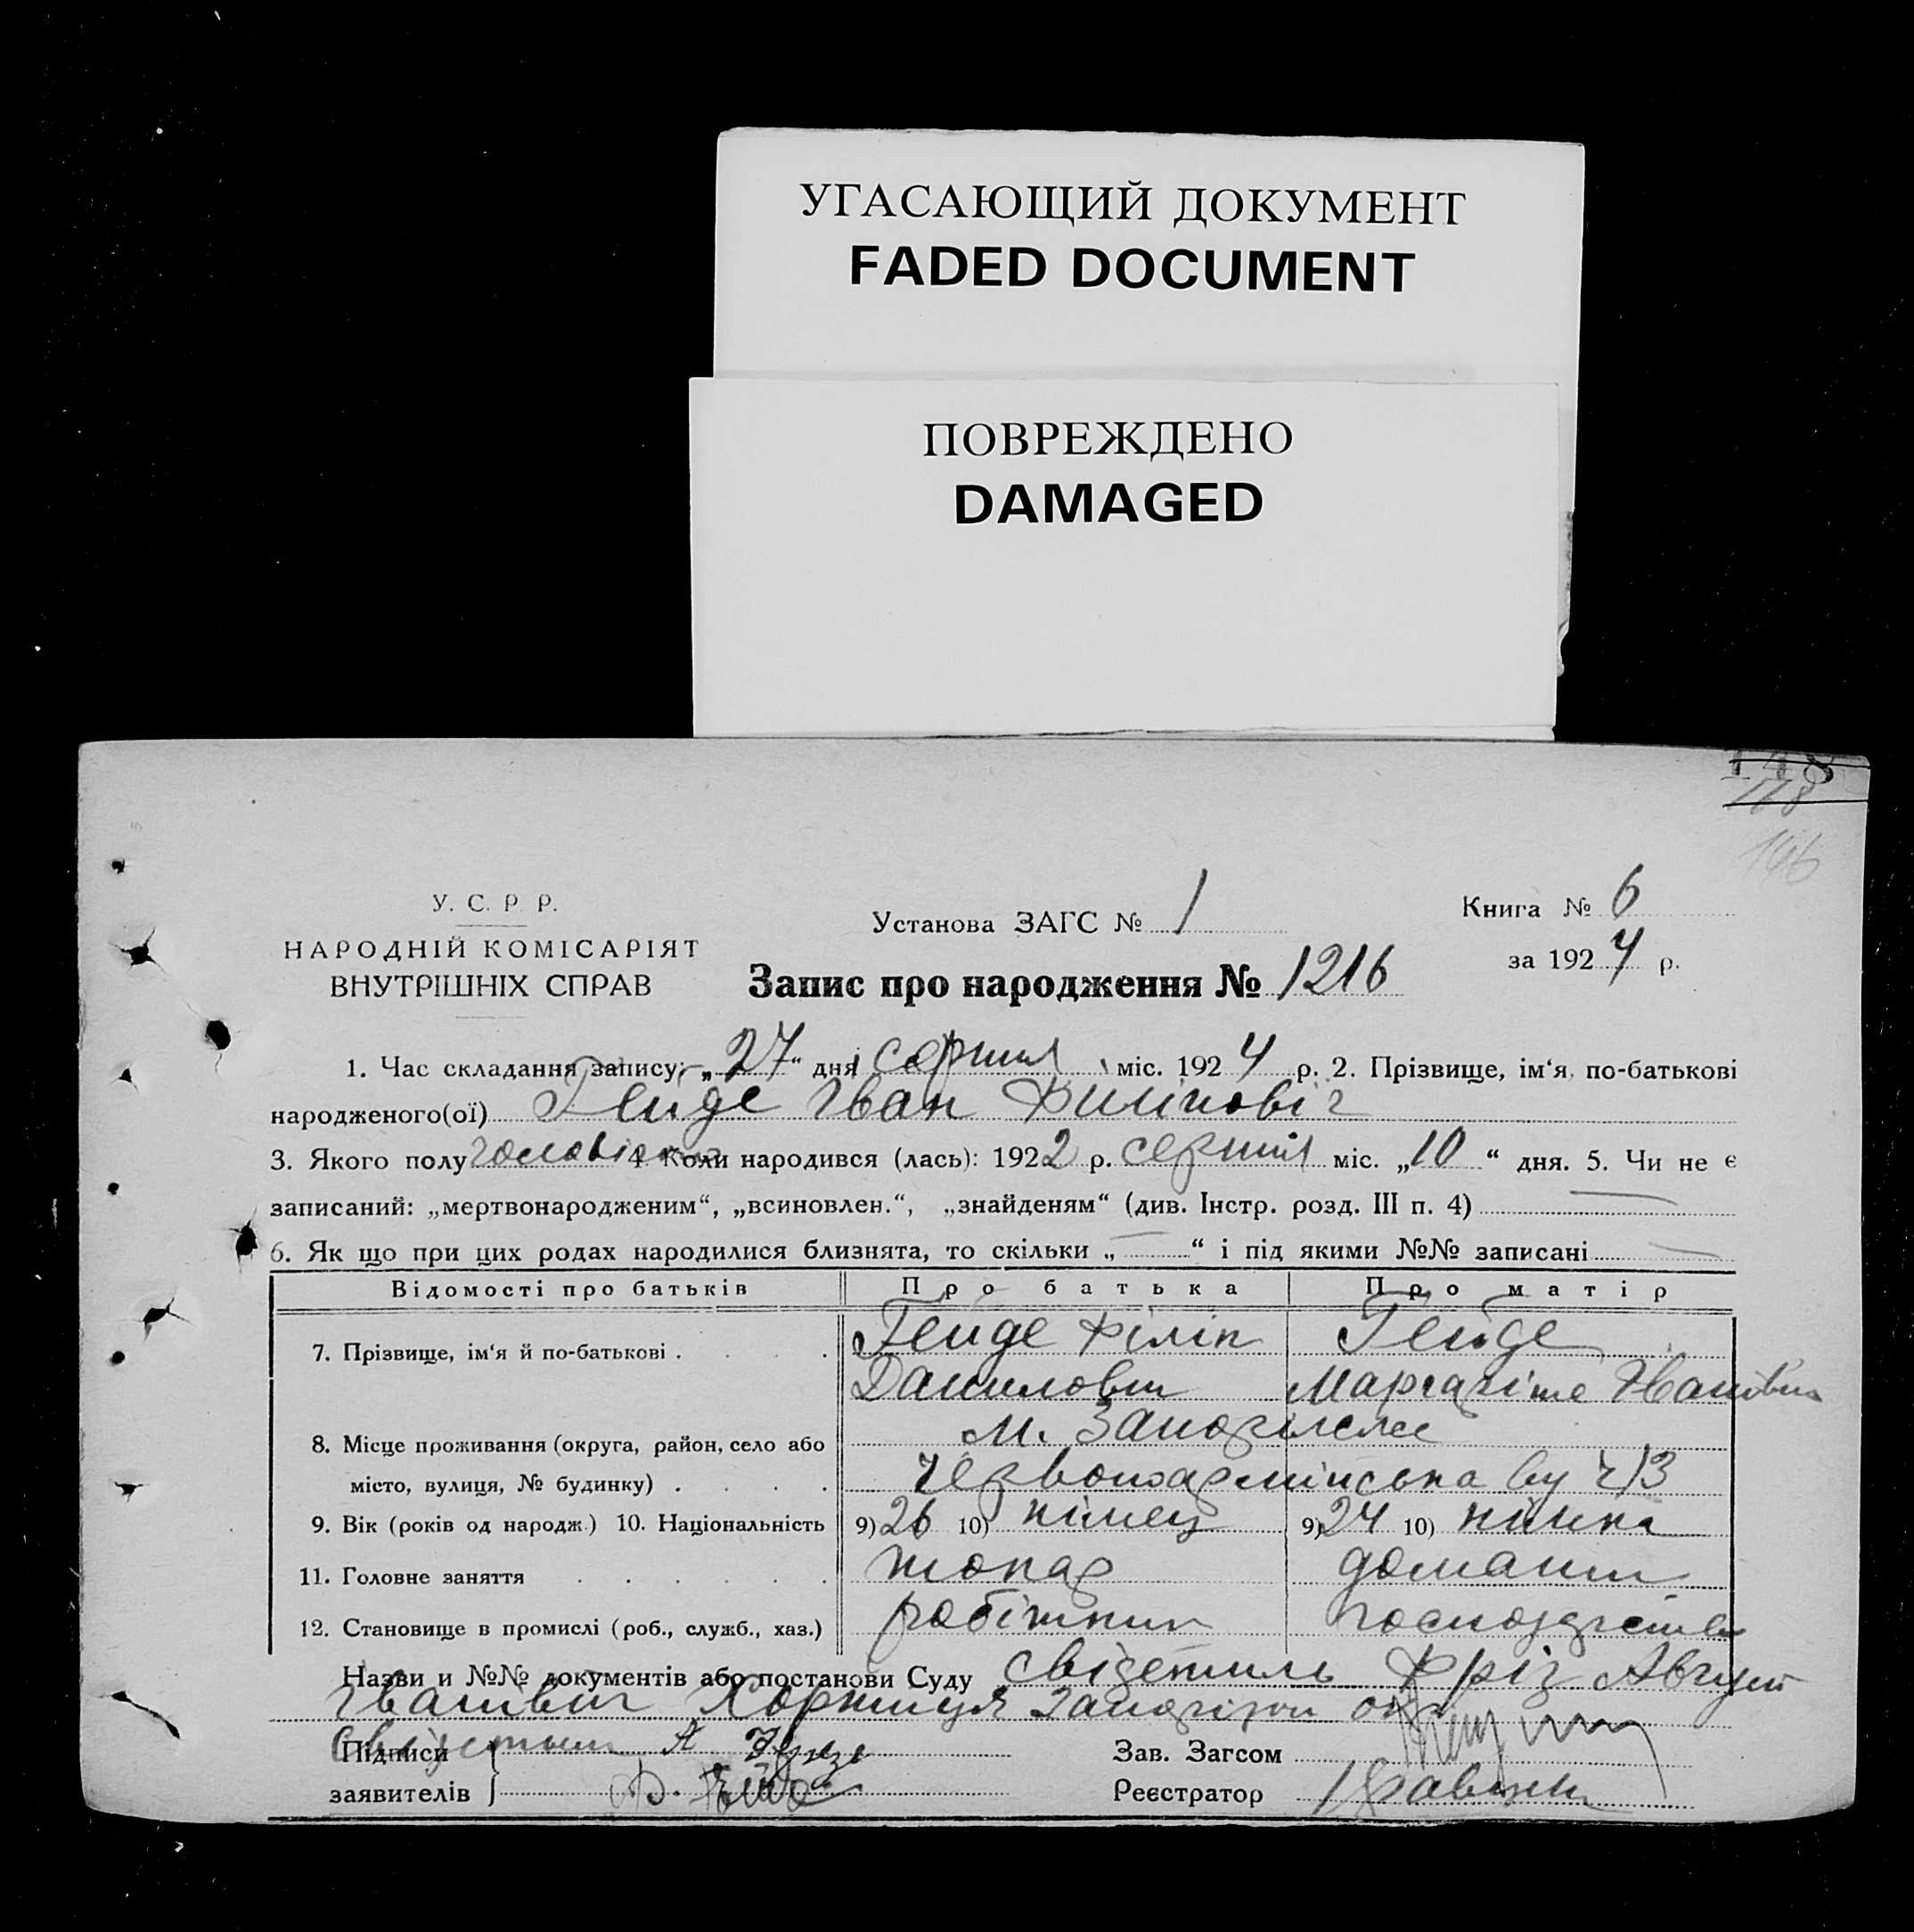 УГАСАЮЩИЙ ДОКУМЕНТ
FADED DOCUMENT
ПОВРЕЖДЕНО
DAMAGED
148
146
У. С. Р. Р.
НАРОДНІЙ КОМІСАРІЯТ
ВНУТРІШНІХ СПРАВ
Установа ЗАГС № 1
Книга № 6
за 1924 р.
Запис про народження № 1216
1. Час складання запису: „27“ дня серпня міс. 1924 р. 2. Прізвище, ім‘я, по-батькові
народженого(ої) Гейде Іван Филіповіч
3. Якого полу чоловіч 4. Коли народився (лась): 1922 р. серпня міс. „10“ дня. 5. Чи не є
записаний: „мертвонародженим“, „всиновлен.“, „знайденям“ (див. Інстр. розд. III п. 4) —
6. Як що при цих родах народилися близнята, то скільки „—“ і під якими №№ записані —
Відомості про батьків Про батька Про матір
7. Прізвище, ім‘я й по-батькові . . . . Гейде Філіп Гейде
Данилович Маргаріта Іванівна
8. Місце проживання (округа, район, село або м. Запоріжжє
місто, вулиця, № будинку) . . . . Червоноармійська ву ч 13
9. Вік (років од народж.) 10. Національність 9) 26 10) німець 9) 24 10) німка
11. Головне заняття . . . . . . токар домашн
12. Становище в промислі (роб., служб., хаз.) робітник господарство
Назви и №№ документів або постанови Суду свідетиль Фріз Август
Іванович Хортиця Запорізьк окр
Підписи
заявителів
Зав. Загсом
Реєстратор